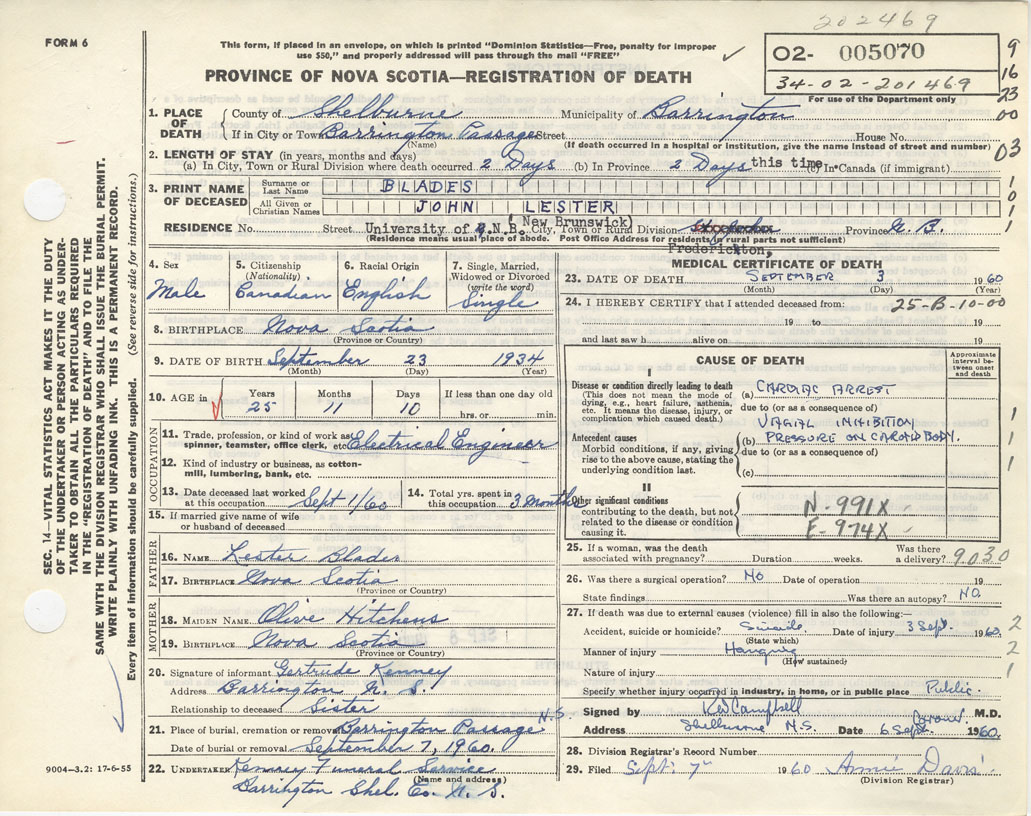 202469
FORM 6
This form, if placed in an envelope, on which is printed "Dominion Statistics—Free, penalty for improper
use $50," and properly addressed will pass through the mail "FREE"
02- 005070
34-02-201469
For use of the Department only
9
16
23
00
03
PROVINCE OF NOVA SCOTIA—REGISTRATION OF DEATH
1. PLACE OF DEATH
County of Shelburne Municipality of Barrington
If in City or Town Barrington Passage Street House No.
(Name) (If death occurred in a hospital or institution, give the name instead of street and number)
2. LENGTH OF STAY (in years, months and days)
(a) In City, Town or Rural Division where death occurred 2 Days (b) In Province 2 Days this time (c) In Canada (if immigrant)
3. PRINT NAME OF DECEASED
Surname or Last Name BLADES
All Given or Christian Names JOHN LESTER
RESIDENCE No. Street University of N.B. (New Brunswick) City, Town or Rural Division Fredericton, Province N. B.
(Residence means usual place of abode. Post Office Address for residents in rural parts not sufficient)
4. Sex
Male
5. Citizenship
(Nationality)
Canadian
6. Racial Origin
English
7. Single, Married, Widowed or Divorced
(write the word)
Single
8. BIRTHPLACE Nova Scotia
(Province or Country)
9. DATE OF BIRTH September 23 1934
(Month) (Day) (Year)
10. AGE in Years Months Days If less than one day old
25 11 10 hrs. or min.
OCCUPATION
11. Trade, profession, or kind of work as
spinner, teamster, office clerk, etc Electrical Engineer
12. Kind of industry or business, as cotton-
mill, lumbering, bank, etc.
13. Date deceased last worked at this occupation Sept 1/60
14. Total yrs. spent in this occupation 3 Months
15. If married give name of wife
or husband of deceased
FATHER
16. NAME Lester Blades
17. BIRTHPLACE Nova Scotia
(Province or Country)
MOTHER
18. MAIDEN NAME Olive Hitchens
19. BIRTHPLACE Nova Scotia
(Province or Country)
20. Signature of informant Gertrude Kenney
Address Barrington N. S.
Relationship to deceased Sister
21. Place of burial, cremation or removal Barrington Passage N.S.
Date of burial or removal September 7, 1960.
22. UNDERTAKER Kenney Funeral Service
(Name and address)
Barrington Shel. Co. N. S.
MEDICAL CERTIFICATE OF DEATH
23. DATE OF DEATH SEPTEMBER 3 1960
(Month) (Day) (Year)
24. I HEREBY CERTIFY that I attended deceased from:
25-B-10-00
19 to 19
and last saw h alive on 19
CAUSE OF DEATH
Approximate interval between onset and death
I
Disease or condition directly leading to death
(This does not mean the mode of
dying, e.g., heart failure, asthenia,
etc. It means the disease, injury, or
complication which caused death.)
(a) CARDIAC ARREST
due to (or as a consequence of)
VAGAL INHIBITION
Antecedent causes
Morbid conditions, if any, giving
rise to the above cause, stating the
underlying condition last.
(b) PRESSURE ON CAROID BODY.
due to (or as a consequence of)
(c)
II
Other significant conditions
contributing to the death, but not
related to the disease or condition
causing it.
N-991X
E-974X
25. If a woman, was the death
associated with pregnancy? Duration weeks. Was there a delivery? 9030
26. Was there a surgical operation? No Date of operation 19
State findings Was there an autopsy? NO
27. If death was due to external causes (violence) fill in also the following:
Accident, suicide or homicide? Suicide Date of injury 3 Sept. 1960
(State which)
Manner of injury Hanging
(How sustained)
Nature of injury
Specify whether injury occurred in industry, in home, or in public place Public.
Signed by KW Campbell M.D.
Address Shelburne N.S. Date 6 Sept. 1960
28. Division Registrar's Record Number
29. Filed Sept. 7th 1960 Annie Davis
(Division Registrar)
SEC. 14—VITAL STATISTICS ACT MAKES IT THE DUTY
OF THE UNDERTAKER OR PERSON ACTING AS UNDER-
TAKER TO OBTAIN ALL THE PARTICULARS REQUIRED
IN THE "REGISTRATION OF DEATH" AND TO FILE THE
SAME WITH THE DIVISION REGISTRAR WHO SHALL ISSUE THE BURIAL PERMIT.
WRITE PLAINLY WITH UNFADING INK. THIS IS A PERMANENT RECORD.
Every item of information should be carefully supplied. (See reverse side for instructions.)
9004-3.2: 17-6-55